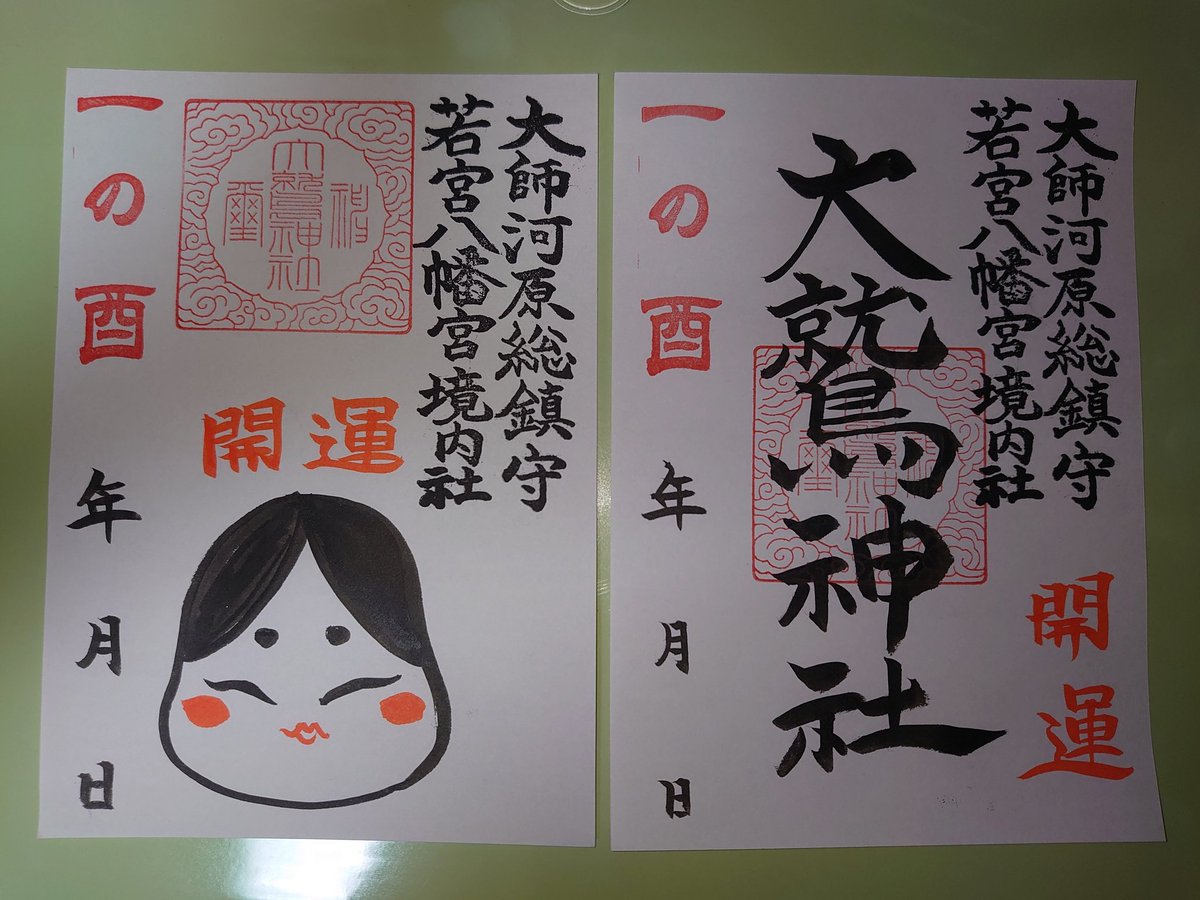 大師河原総鎮守
若宮八幡宮境内社
大鷲神社
開運
一の酉
年
月
日
大師河原総鎮守
若宮八幡宮境内社
大鷲神社
開運
一の酉
年
月
日